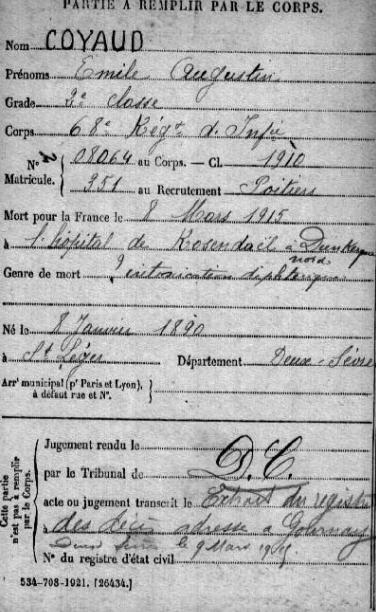 PARTIE À REMPLIR PAR LE CORPS.
Nom COYAUD
Prénoms Emile Augustin
Grade 2e classe
Corps 68e Régt d'Infie
N° 08064 au Corps. — Cl. 1910
Matricule. 951 au Recrutement Poitiers
Mort pour la France le 8 Mars 1915
à l'hôpital de Rosendaël à Dunkerque
Nord
Genre de mort intoxication diphtérique
Né le 8 Janvier 1890
à St Léger Département Deux-Sèvre
Arrt municipal (pr Paris et Lyon),
à défaut rue et N°.
Cette partie
n'est pas à remplir
par le Corps.
Jugement rendu le
par le Tribunal de D.C.
acte ou jugement transcrit le Extrait du registre
des décès adressé à Gournay
Deux Sèvres le 9 Mars
N° du registre d'état civil
534-708-1921. [26434.]